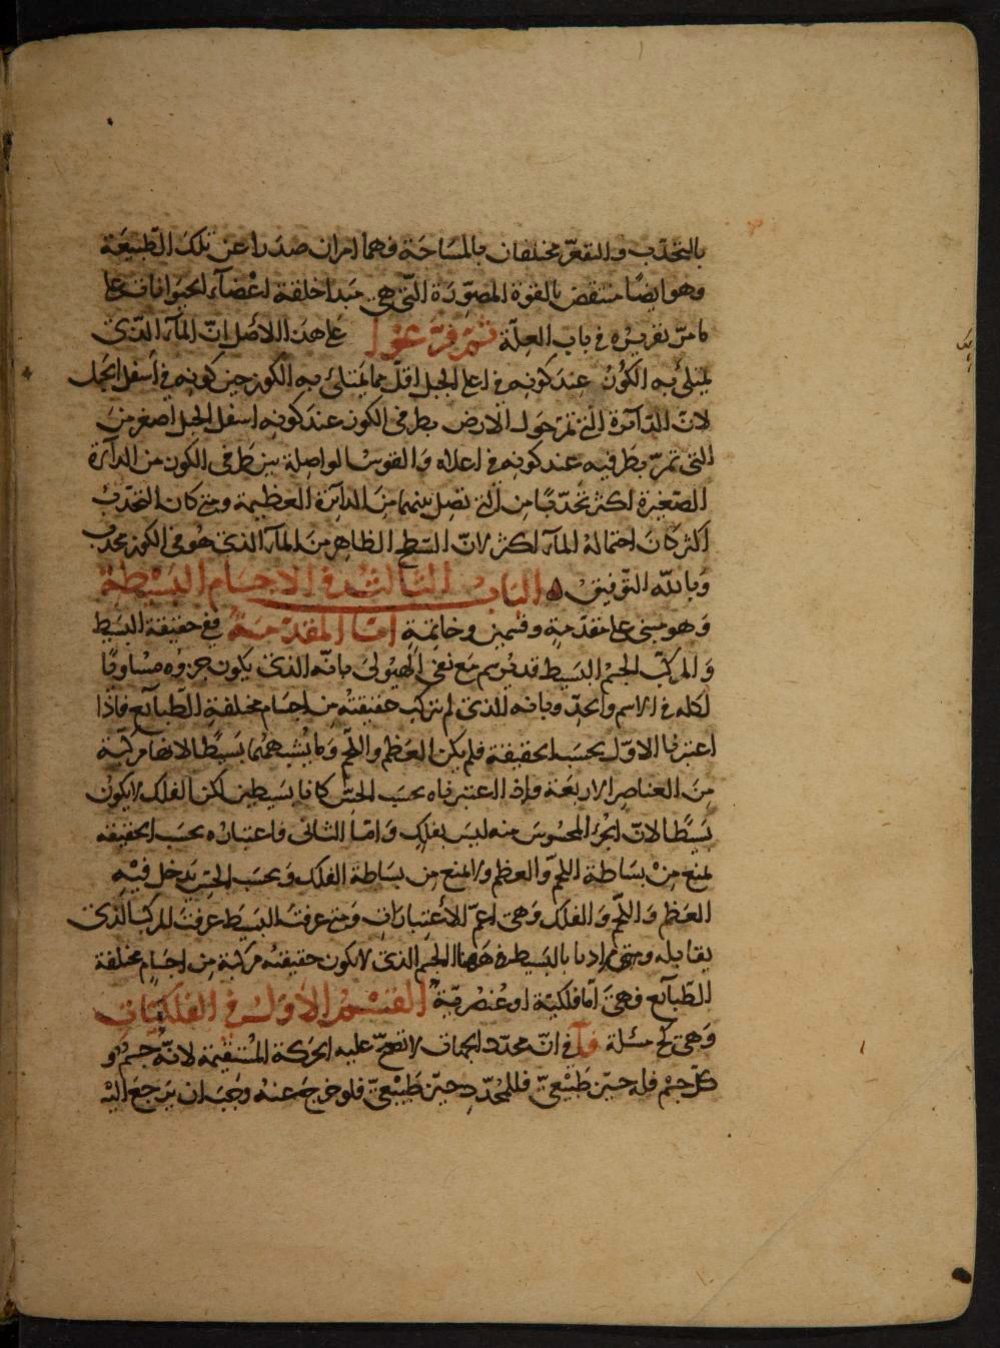 بالتحدّب والتقعّر مختلفان بالمسَاحَة فهما امران صدَرا عن تلك الطّبيعَة
وهو ايضًا منتقض بالقوة المصوّرَة التّى هى مَبدا خلقة اعْضآء الحيَوانات على
ما مرّ تقريرُه فى باب العلّة ثم فرّعوا على هذا الاصْل انّ المآء الذّى
يمتلئ به الكُوزُ عندَ كونِه فى اعلى الجبل اقلّ مما يمتلئ به الكوز حين كونِه فى اسفل الجبل
لانّ الدّائرة التى تمرّ حَول الارض بطرفى الكوز عندَ كونه اسفل الجبل اصغر منَ
التى تمرّ بطرفيه عند كونِه فى اعلاه وَالقوسُ الواصلة بين طرفى الكوز من الدآئرة
الصّغيرة اكثر تحدّبًا من التى تصل بينهما منَ الدائرة العظيمة ومتى كان التحدّبُ
اكثر كانَ احتمالهُ المآء اكثر لانّ السّطح الظاهر منَ المآء الذى هُو فى الكوز محدّب
وَبالله التّوفيق ه البابُ الثالثُ فى الاجسَام البَسيْطة
وَهو مبنى على مقدّمةٍ وقسمين وخاتمةٍ امّا المقدّمَةُ ففى حقيقة البسَيط
وَالمركّب الجسْم البسَيط قد يُرسم مَع نفى الهيُولىَ بانّه الذىَ يكون جزؤه مسَاويًا
لكله فى الاسم والحدّ وبانه الذىَ لم تتركب حَقيقتهُ من اجسَام مختلفةِ الطّبآئع فاذا
اعتبرنا الاوّل بحسَب الحقيقة فلم يكن العَظم واللحم وَما يُشبههُما بَسيَطًا لانها مركّبة
مِنَ العناصر الاربعَة واذا اعتبرناه بحسَب الحسّ كانا بسَيطين لكن الفلك لا يكونُ
بسَيْطًا لانّ الجزء المحسُوسَ منه ليسَ بفلكٍ وَامّا الثانى فاعتبارُه بحسَب الحقيقه
يمنع منْ بسَاطة اللحم وَالعظم ولا يمنع من بسَاطة الفلك وَبحسَب الحسّ يَدخل فيْهِ
العَظم وَاللحم وَالفلك وَهى اعمّ الاعتبارات وَمتى عرفتَ البسَيط عرفتَ المركب الذى
يقابله ومتى مرادنا بالبسَيط هَهُنا الجسم الذى لا تكون حقيقتهُ مركّبة من اجسَام مختلفة
الطبآئع فهىَ امّا فلكيّة او عُنصريّةٌ القسْمُ الاوّلُ فى الفلكيّات
وَهى كح مسَئلة فآ فى انّ محدّد الجهات لا تصحّ عليه الحرَكة المسْتقيمة لانّهُ جسْمٌ و
كلّ جسْمٍ فله حيّز طبيْعىّ فللمحدّد حيّز طبيْعىّ فلو خرجَ عنهُ وجَبَ ان يَرجعَ اليْه